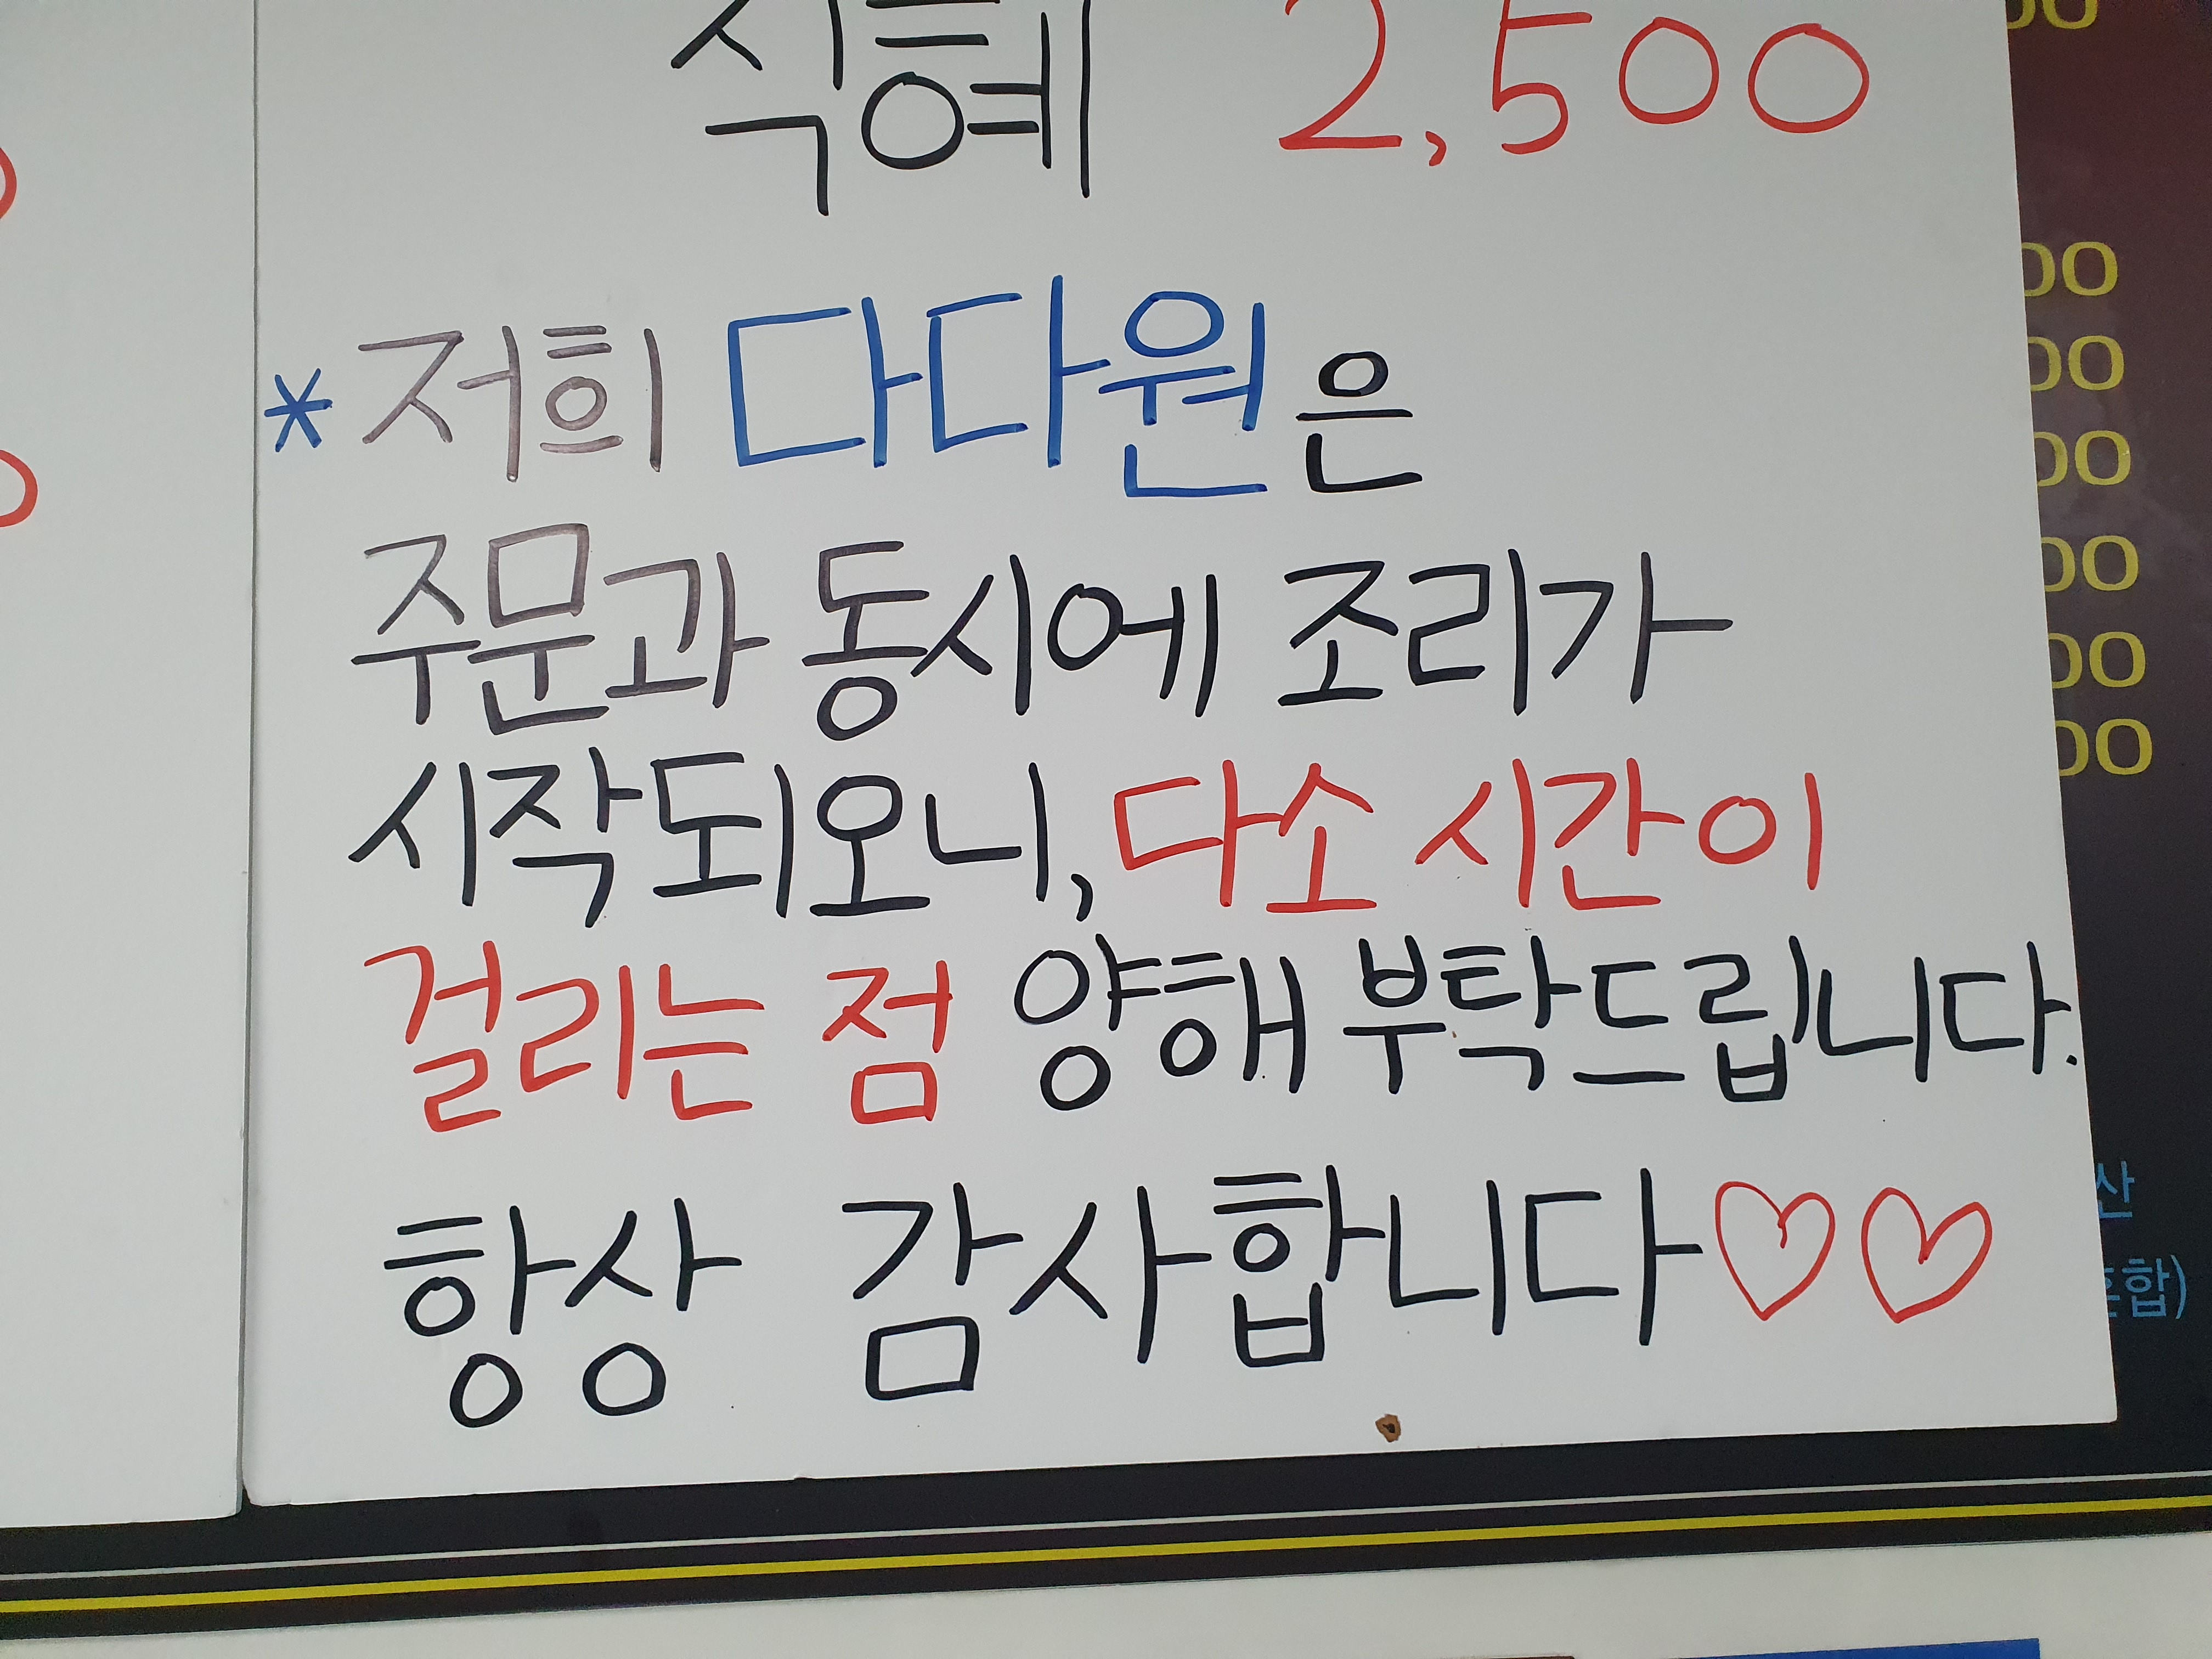 식혜 2,500
* 저희 다다원은
주문과 동시에 조리가
시작되오니, 다소 시간이
걸리는 점 양해 부탁드립니다.
항상 감사합니다♡♡
00
00
00
00
00
00
00
산
합)